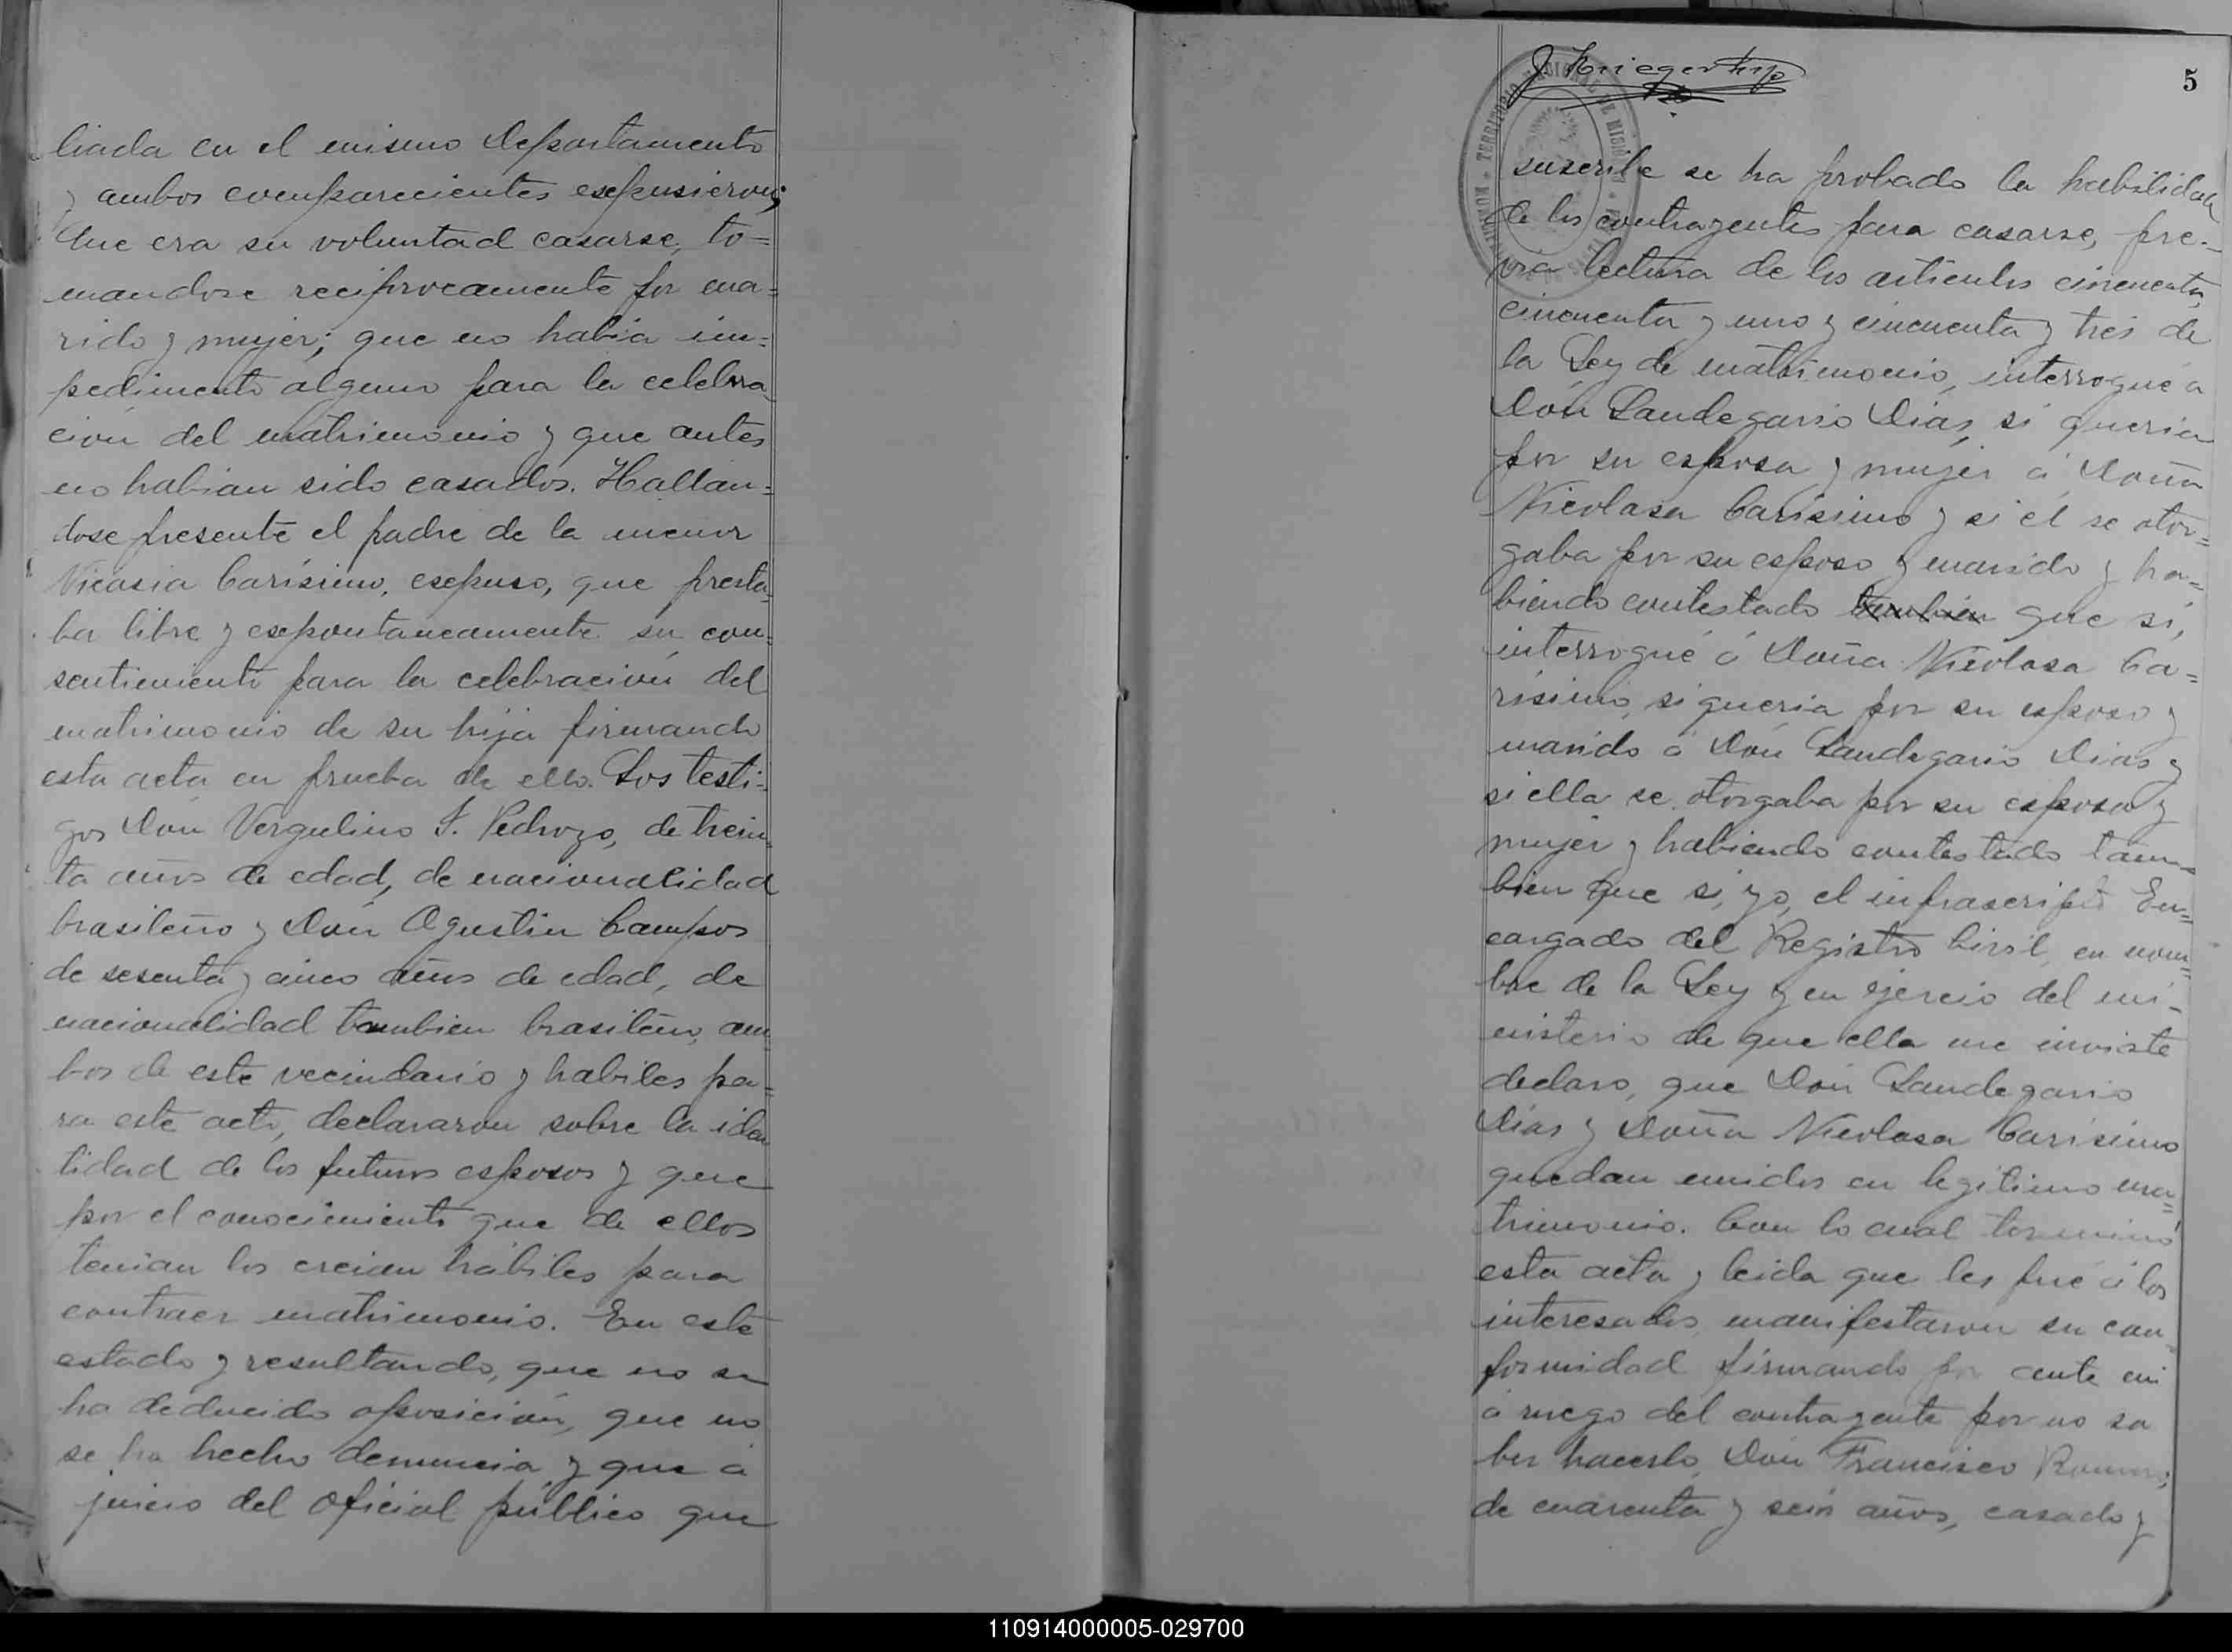 liada en el mismo Departamento
y ambos comparecientes esepusieron;
Que era su voluntad casarse, to=
mandose reciprocamente por ma=
rido y mujer; que no habia im=
pedimento alguno para la celebra
ción del matrimonio y que antes
no habian sido casados. Hallan=
dose presente el padre de la menor
Nicasia Carísimo, esepuso, que presta
ba libre y esepontaneamente su con=
sentimiento para la celebración del
matrimonio de su hija firmando
esta acta en prueba de ello. Los testi=
gos Dón Vergulino F. Pedrozo, de trein
ta años de edad, de nacionalidad
brasileño y Dón Agustin Campos
de sesenta y cinco años de edad, de
nacionalidad tambien brasileño, am
bos de este vecindario y habiles pa=
ra este acto, declararon sobre la iden
tidad de los futuros esposos y que
por el conocimiento que de ellos
tenian los creian hábiles para
contraer matrimonio. En este
estado y resultando, que no se
ha deducido oposición, que no
se ha hecho denuncia, y que á
juicio del oficial público que
J. Krieger hijo
5
TERRITORIO NACIONAL DE MISIONES
suscribe se ha probado la habilidad
de los contrayentes para casarse, pre-
via lectura de los artículos cincuenta,
cincuenta y uno y cincuenta y tres de
la Ley de matrimonio, interrogué a
Dón Laudegario Diás, si queria
por su esposa y mujer á Doña
Nicolasa Carísimo y si él se otor=
gaba por su esposo y marido y ha=
biendo contestado tambien que sí,
interrogué á Doña Nicolasa Ca=
rísimo, si queria por su esposo y
marido á Dón Laudegario Dias y
si ella se otorgaba por su esposa y
mujer y habiendo contestado tam
bien que si, yo, el infrascripto En=
cargado del Registro Civil, en nom=
bre de la Ley y en ejercio del mi-
nisterio de que ella me inviste
declaro, que Dón Laudegario
Diás y Doña Nicolasa Carisimo
quedan unidos en legitimo ma=
trimonio. Con lo cual terminó
esta acta y leida que les fué á los
interesados, manifestaron su con
formidad firmando por ante mi
á ruego del contrayente por no sa
ber hacerlo, Dón Francisco Romero,
de cuarenta y seis años, casado y
110914000005-029700